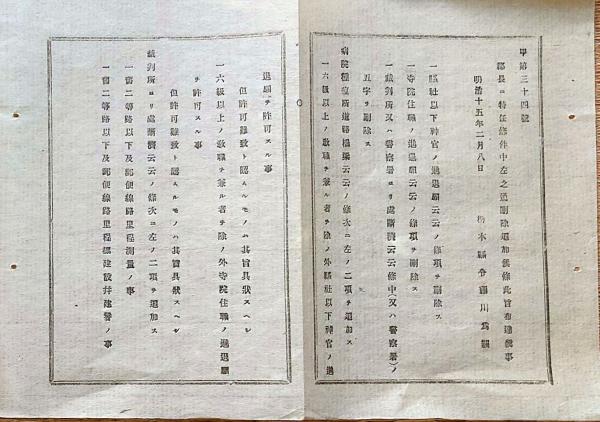 甲第三十四號
郡長ニ特任條件中左之通刪除追加候條此旨布達候事
明治十五年二月八日　栃木縣令藤川爲親
一縣社以下神官ノ進退願云云ノ條項ヲ刪除ス
一寺院住職ノ進退願云云ノ條項ヲ刪除ス
一裁判所又ハ警察署ヨリ處斷濟云云條中(又ハ警察署)ノ
五字ヲ刪除ス
病院種痘所道路橋梁云云ノ條次ニ左ノ二項ヲ追加ス
一六級以上ノ敎職ヲ兼ル者ヲ除ノ外縣社以下神官ノ進
退願ヲ許可スル事
但許可難致ト認ムルモノハ其旨具狀スヘシ
一六級以上ノ敎職ヲ兼ル者ヲ除ノ外寺院住職ノ進退願
ヲ許可スル事
但許可難致ト認ムルモノハ其旨具狀スヘシ
裁判所ヨリ處斷濟云云ノ條次ニ左ノ二項ヲ追加ス
一舊二等路以下及郵便線路里程測量ノ事
一舊二等路以下及郵便線路里程標建設幷建替ノ事